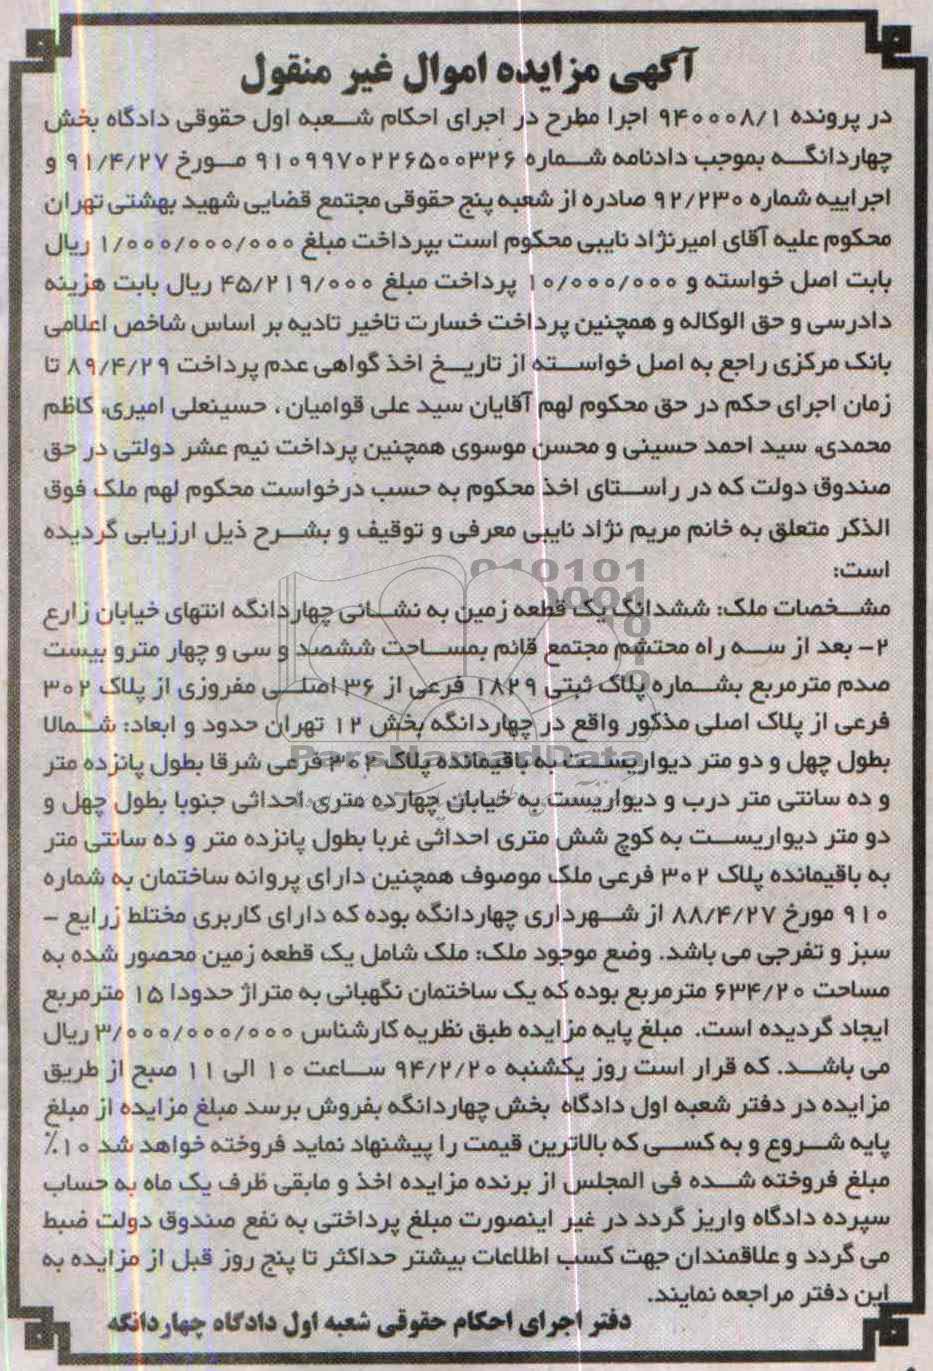 آگهی مزایده اموال غیر منقول
در پرونده ۹۴۰۰۰۸/۱ اجرا مطرح در اجرای احکام شعبه اول حقوقی دادگاه بخش
چهاردانگه بموجب دادنامه شماره ۹۱۰۹۹۷۰۲۲۶۵۰۰۳۲۶ مورخ ۹۱/۴/۲۷ و
اجراییه شماره ۹۲/۲۳۰ صادره از شعبه پنج حقوقی مجتمع قضایی شهید بهشتی تهران
محکوم علیه آقای امیرنژاد نایبی محکوم است بپرداخت مبلغ ۱/۰۰۰/۰۰۰/۰۰۰ ریال
بابت اصل خواسته و ۱۰/۰۰۰/۰۰۰ پرداخت مبلغ ۴۵/۲۱۹/۰۰۰ ریال بابت هزینه
دادرسی و حق الوکاله و همچنین پرداخت خسارت تاخیر تادیه بر اساس شاخص اعلامی
بانک مرکزی راجع به اصل خواسته از تاریخ اخذ گواهی عدم پرداخت ۸۹/۴/۲۹ تا
زمان اجرای حکم در حق محکوم لهم آقایان سید علی قوامیان ، حسینعلی امیری، کاظم
محمدی، سید احمد حسینی و محسن موسوی همچنین پرداخت نیم عشر دولتی در حق
صندوق دولت که در راستای اخذ محکوم به حسب درخواست محکوم لهم ملک فوق
الذکر متعلق به خانم مریم نژاد نایبی معرفی و توقیف و بشرح ذیل ارزیابی گردیده
است:
مشخصات ملک: ششدانگ یک قطعه زمین به نشانی چهاردانگه انتهای خیابان زارع
۲- بعد از سه راه محتشم مجتمع قائم بمساحت ششصد و سی و چهار مترو بیست
صدم مترمربع بشماره پلاک ثبتی ۱۸۲۹ فرعی از ۳۶ اصلی مفروزی از پلاک ۳۰۲
فرعی از پلاک اصلی مذکور واقع در چهاردانگه بخش ۱۲ تهران حدود و ابعاد: شمالا
بطول چهل و دو متر دیواریست به باقیمانده پلاک ۳۰۲ فرعی شرقا بطول پانزده متر
و ده سانتی متر درب و دیواریست به خیابان چهارده متری احداثی جنوبا بطول چهل و
دو متر دیواریست به کوچ شش متری احداثی غربا بطول پانزده متر و ده سانتی متر
به باقیمانده پلاک ۳۰۲ فرعی ملک موصوف همچنین دارای پروانه ساختمان به شماره
۹۱۰ مورخ ۸۸/۴/۲۷ از شهرداری چهاردانگه بوده که دارای کاربری مختلط زرایع -
سبز و تفرجی می باشد. وضع موجود ملک: ملک شامل یک قطعه زمین محصور شده به
مساحت ۶۳۴/۲۰ مترمربع بوده که یک ساختمان نگهبانی به متراژ حدودا ۱۵ مترمربع
ایجاد گردیده است. مبلغ پایه مزایده طبق نظریه کارشناس ۳/۰۰۰/۰۰۰/۰۰۰ ریال
می باشد. که قرار است روز یکشنبه ۹۴/۲/۲۰ ساعت ۱۰ الی ۱۱ صبح از طریق
مزایده در دفتر شعبه اول دادگاه بخش چهاردانگه بفروش برسد مبلغ مزایده از مبلغ
پایه شروع و به کسی که بالاترین قیمت را پیشنهاد نماید فروخته خواهد شد ۱۰٪
مبلغ فروخته شده فی المجلس از برنده مزایده اخذ و مابقی ظرف یک ماه به حساب
سپرده دادگاه واریز گردد در غیر اینصورت مبلغ پرداختی به نفع صندوق دولت ضبط
می گردد و علاقمندان جهت کسب اطلاعات بیشتر حداکثر تا پنج روز قبل از مزایده به
این دفتر مراجعه نمایند.
دفتر اجرای احکام حقوقی شعبه اول دادگاه چهاردانگه
ParsNamadData